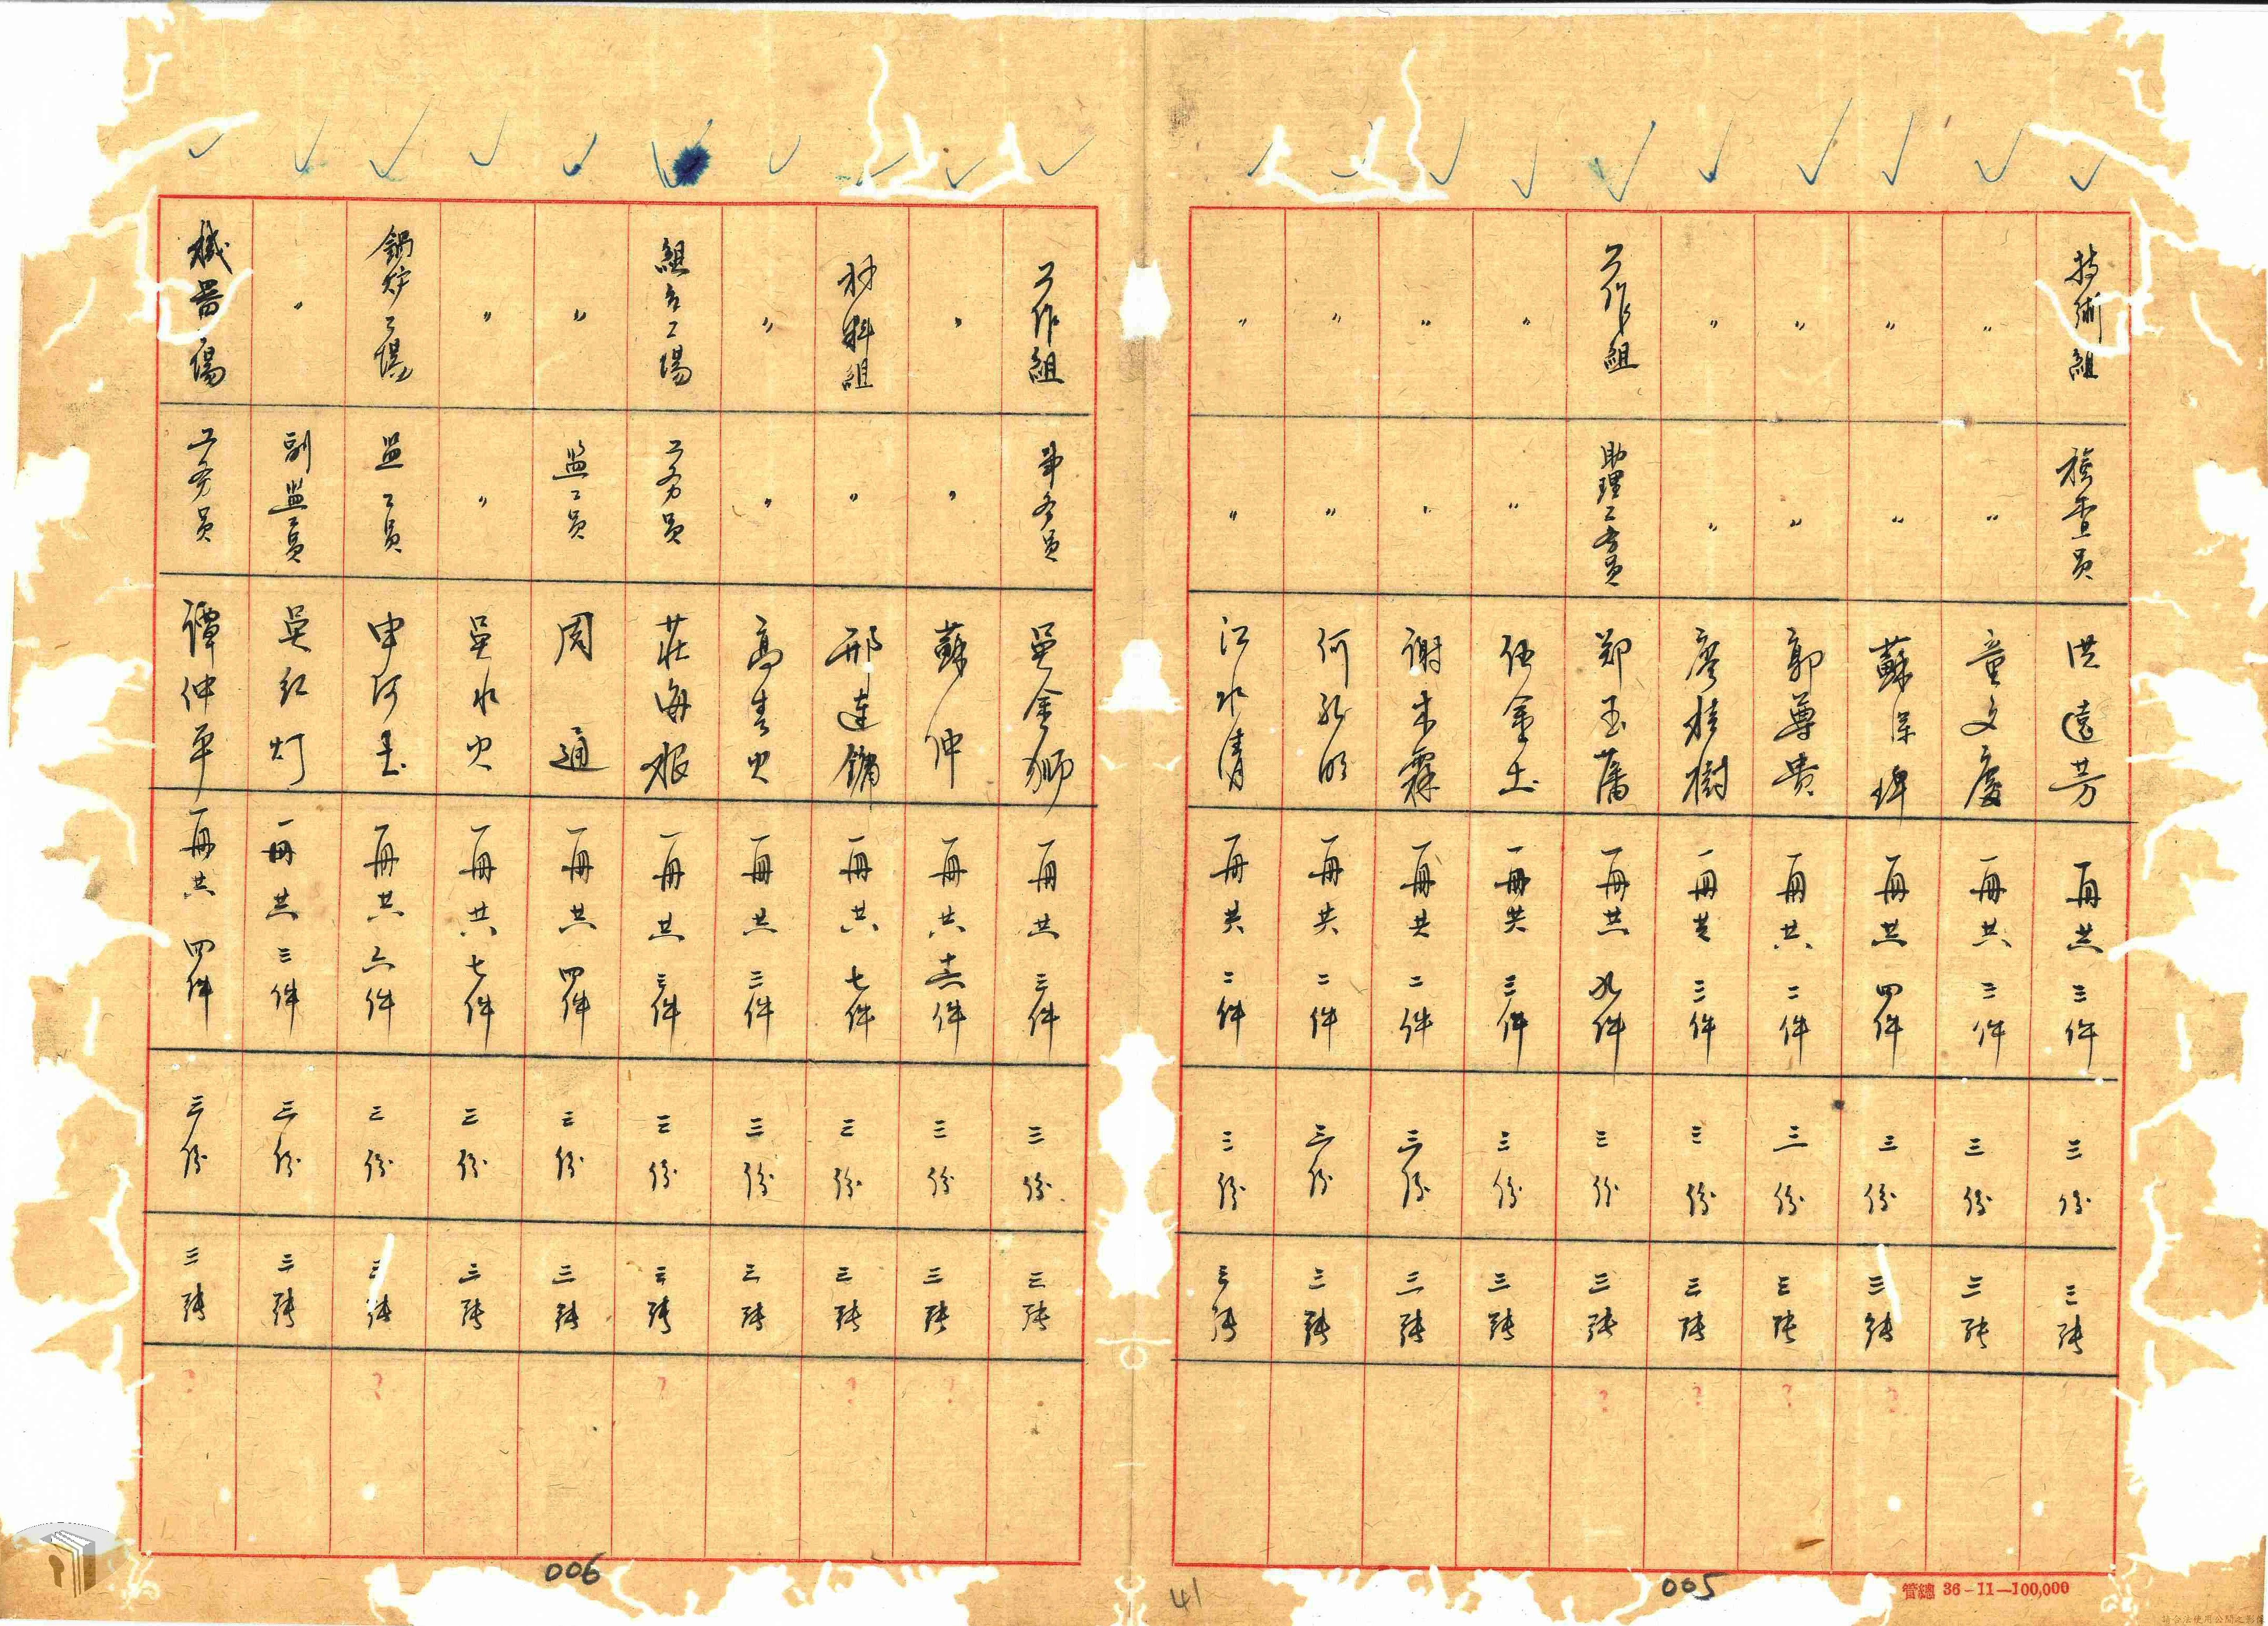 技術組 檢查員 洪遠芳 一冊共三件 三份 三張
〃 〃 童文慶 一冊共三件 三份 三張
〃 〃 蘇 一冊共四件 三份 三張
〃 〃 郭尊貴 一冊共二件 三份 三張
〃 〃 廖桂樹 一冊共三件 三份 三張
工作組 助理工務員 鄭玉藩 一冊共九件 三份 三張
〃 〃 伍金土 一冊共三件 三份 三張
〃 〃 謝木霖 一冊共二件 三份 三張
〃 〃 何 一冊共二件 三份 三張
〃 〃 江水清 一冊共二件 三份 三張
管總 36-11-100,000
005
41
工作組 事务员 吳金獅 一冊共三件 三份 三張
〃 〃 蘇仲 一冊共件 三份 三張
材料組 〃 邢連鏞 一冊共七件 三份 三張
〃 〃 高 一冊共三件 三份 三張
組立工場 工务员 莊海根 一冊共三件 三份 三張
〃 监工员 周通 一冊共四件 三份 三張
〃 〃 吳水 一冊共七件 三份 三張
鍋炉工場 监工员 申阿玉 一冊共六件 三份 三張
〃 副监工員 吳红灯 一冊共三件 三份 三張
機器場 工务员 譚仲平 一冊共四件 三份 三張
006